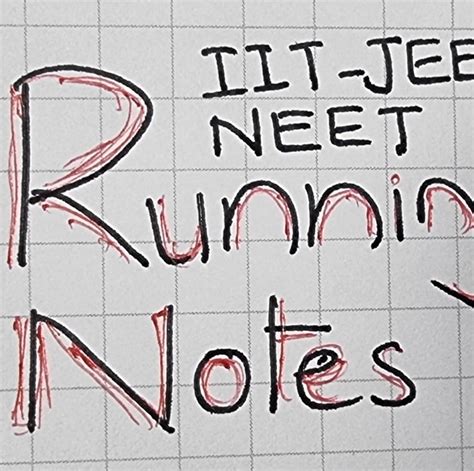 IIT-JEE
NEET
Running
Notes